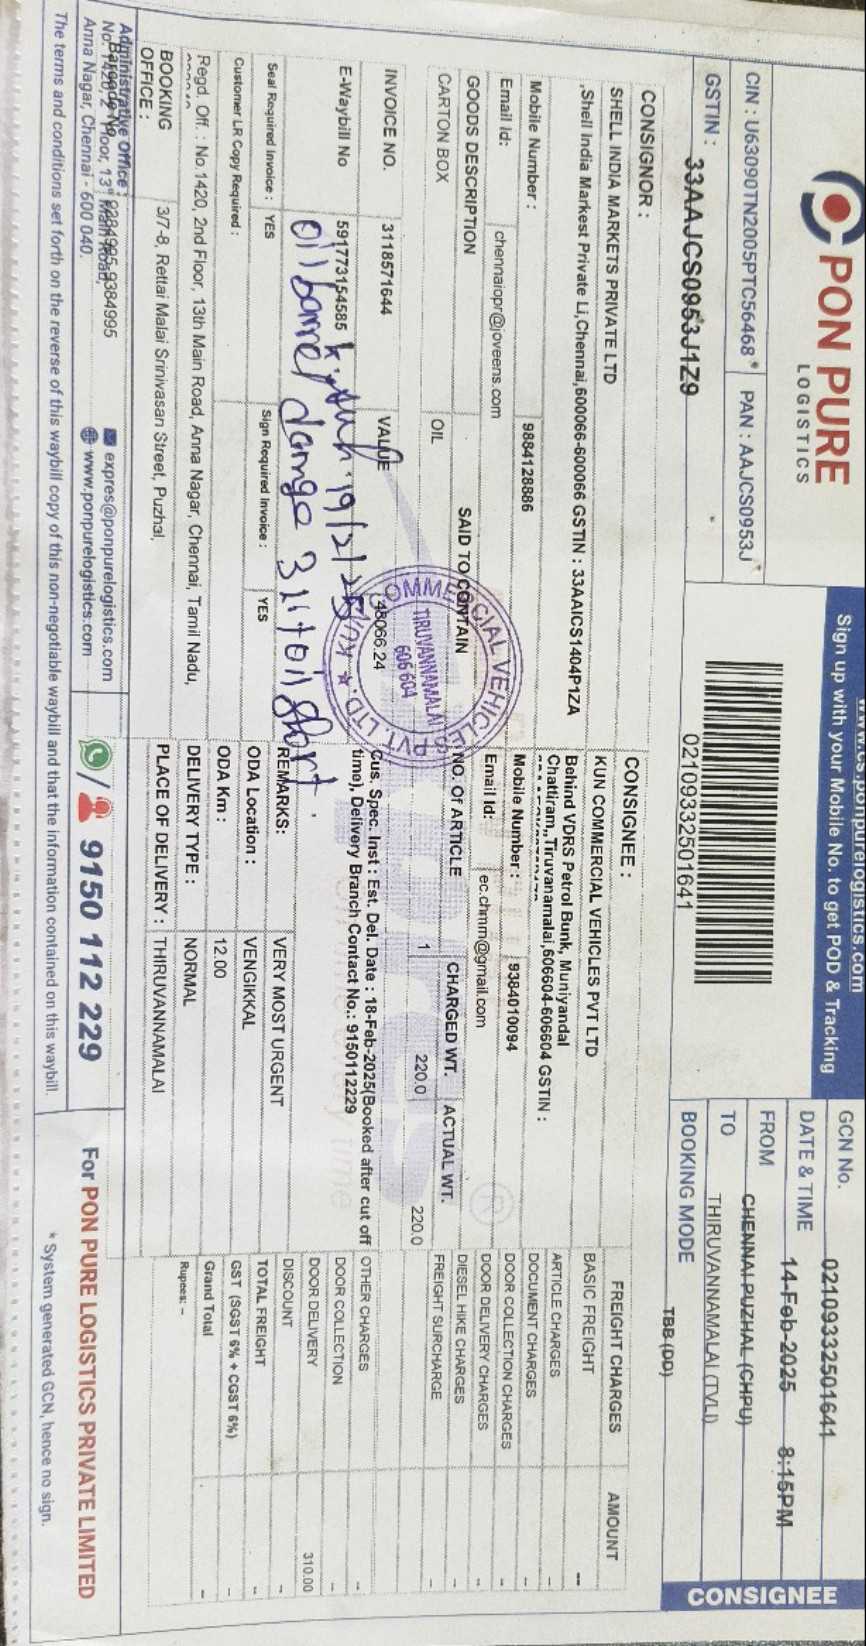 PON PURE
LOGISTICS
www.cs.ponpurelogistics.com
Sign up with your Mobile No. to get POD & Tracking
CIN : U63090TN2005PTC56468
PAN : AAJCS0953J
GSTIN : 33AAJCS0953J1Z9
02109332501641
GCN No. 02109332501641
DATE & TIME 14-Feb-2025 8:15PM
FROM CHENNAI PUZHAL (CHPU)
TO THIRUVANNAMALAI (TVLI)
BOOKING MODE TBB (DD)
CONSIGNEE
CONSIGNOR :
SHELL INDIA MARKETS PRIVATE LTD
,Shell India Markest Private Li,Chennai,600066-600066 GSTIN : 33AAICS1404P1ZA
Mobile Number : 9884128886
Email Id: chennaiopr@joveens.com
CONSIGNEE :
KUN COMMERCIAL VEHICLES PVT LTD
Behind VDRS Petrol Bunk, Muniyandal
Chattiram,,Tiruvanamalai,606604-606604 GSTIN :
Mobile Number : 9384010094
Email Id: ec.chmm@gmail.com
GOODS DESCRIPTION SAID TO CONTAIN NO. Of ARTICLE CHARGED WT. ACTUAL WT.
CARTON BOX OIL 1 220.0 220.0
INVOICE NO. 3118571644 VALUE 48066.24
E-Waybill No 591773154585
Cus. Spec. Inst : Est. Del. Date : 18-Feb-2025(Booked after cut off
time), Delivery Branch Contact No.: 9150112229
19/2/25
oil barrel damge 3 lit oil short.
COMMERCIAL VEHICLES PVT. LTD. ★ KUN
TIRUVANNAMALAI
606 604
Seal Required Invoice : YES Sign Required Invoice : YES
Customer LR Copy Required :
REMARKS: VERY MOST URGENT
ODA Location : VENGIKKAL
ODA Km : 12.00
DELIVERY TYPE : NORMAL
PLACE OF DELIVERY : THIRUVANNAMALAI
Regd. Off. : No.1420, 2nd Floor, 13th Main Road, Anna Nagar, Chennai, Tamil Nadu,
BOOKING OFFICE : 3/7-8, Rettai Malai Srinivasan Street, Puzhal,
FREIGHT CHARGES AMOUNT
BASIC FREIGHT --
ARTICLE CHARGES --
DOCUMENT CHARGES --
DOOR COLLECTION CHARGES --
DOOR DELIVERY CHARGES --
DIESEL HIKE CHARGES --
FREIGHT SURCHARGE --
OTHER CHARGES --
DOOR COLLECTION --
DOOR DELIVERY 310.00
DISCOUNT --
TOTAL FREIGHT --
GST (SGST 6% + CGST 6%) --
Grand Total --
Rupees: –
Administrative Office :
Anna Nagar, Chennai - 600 040.
expres@ponpurelogistics.com
www.ponpurelogistics.com
9150 112 229
For PON PURE LOGISTICS PRIVATE LIMITED
* System generated GCN, hence no sign.
The terms and conditions set forth on the reverse of this waybill copy of this non-negotiable waybill and that the information contained on this waybill.